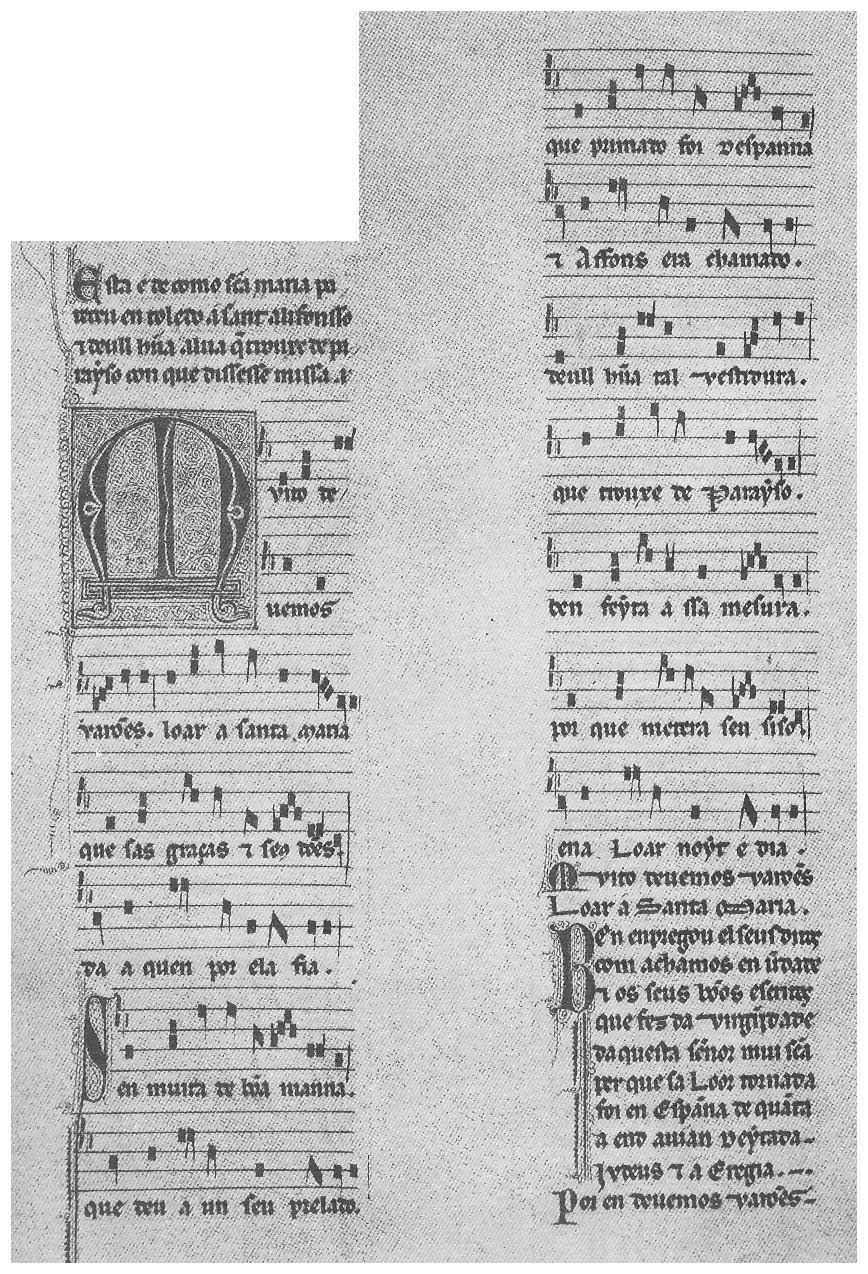 Esta e de como sc̃a maria pa
receu en toleto. a sant alifonsso
⁊ deull hũa alua q̃ trouxe de pa
raỹso con que dissesse missa. ⁊
Muito de
uemos
varões. loar a santa maria
que sas graças ⁊ seo dões.
da a quen por ela fia.
Sen muita de bõa manna.
que deu a un seu prelado.
que primado foi despanna
⁊ Affons era chamado.
deull hũa tal vestidura.
que trouxe de Parayso.
ben feyta a ssa mesura.
por que metera seu siso.
ena Loar noyt e dia.
Muito deuemos varoẽs
Loar a Santa Maria.
Ben enpregou el seus ditos
com achamos en ũdade
⁊ os seus bõos escritos
que fez da virgĩidade
daquesta sẽnor mui sc̃a
per que sa Loor tornada
foi en Espãna de quãta
a end auian deytada-
Judeus ⁊ a Eregia.
Por en deuemos varoẽs-